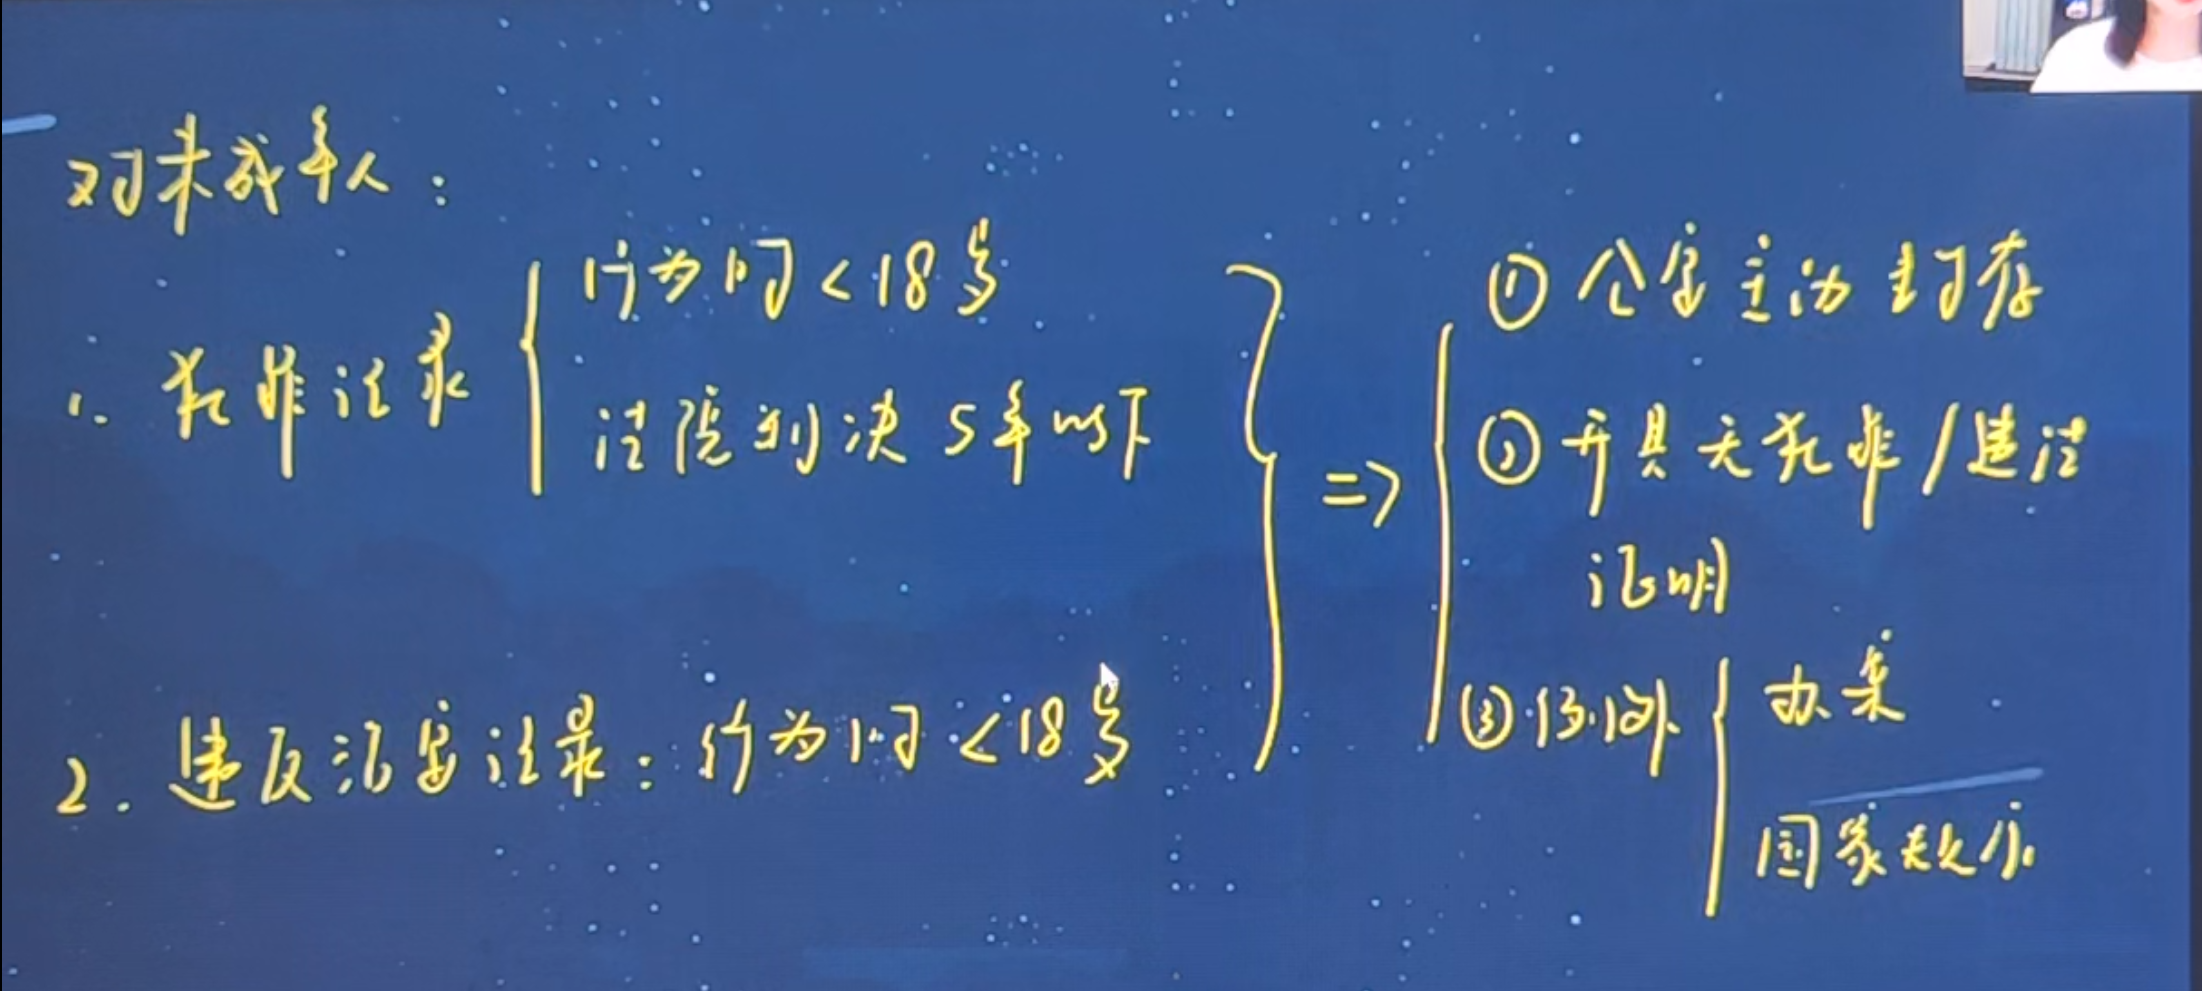 对未成年人：
1. 犯罪记录
行为时<18岁
法院判决5年以下
2. 违反治安记录：行为时<18岁
=>
① 公安主动封存
② 开具无犯罪/违法
证明
③ 例外
办案
国家规定